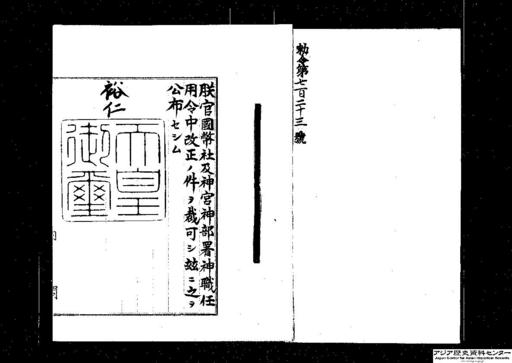 勅令第七百二十三號
朕官國幣社及神宮神部署神職任
用令中改正ノ件ヲ裁可シ玆ニ之ヲ
公布セシム
裕仁
天皇
御璽
アジア歴史資料センター
Japan Center for Asian Historical Records